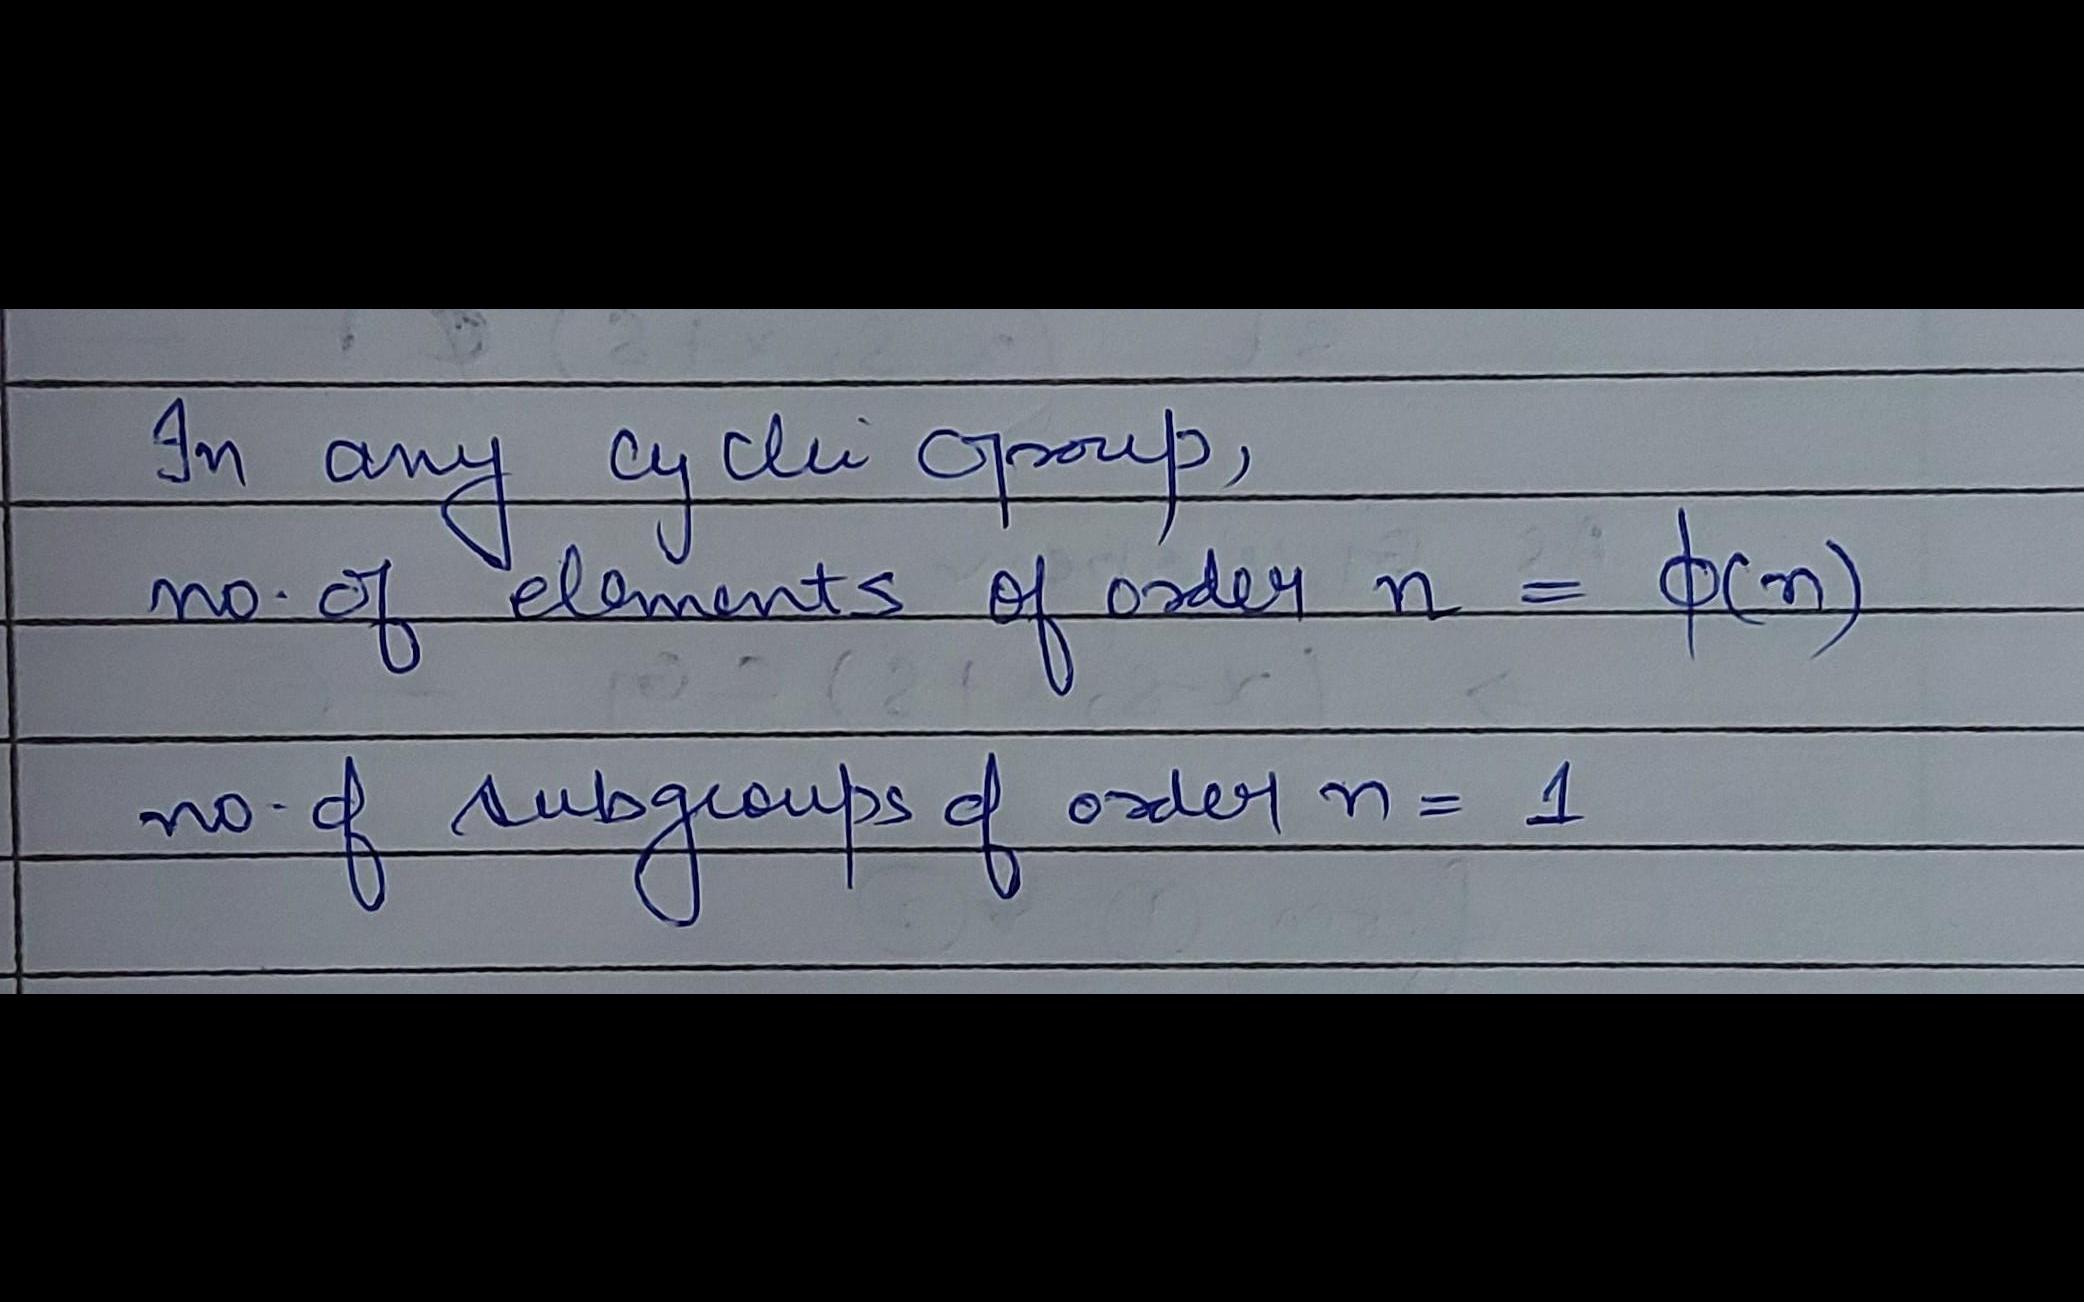 In any cyclic Group,
no. of elements of order n = ϕ(n)
no. of subgroups of order n = 1